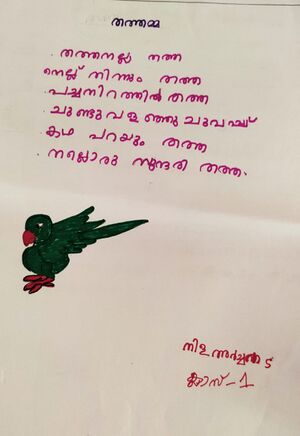 തത്തമ്മ
തത്തനല്ല തത്ത
നെല്ല് തിന്നും തത്ത
പച്ചനിറത്തിൽ തത്ത
ചുണ്ടുവളഞ്ഞുചുവപ്പ്
കഥ പറയും തത്ത
നല്ലൊരു സുന്ദരി തത്ത.
നിള
ക്ലാസ് - 1